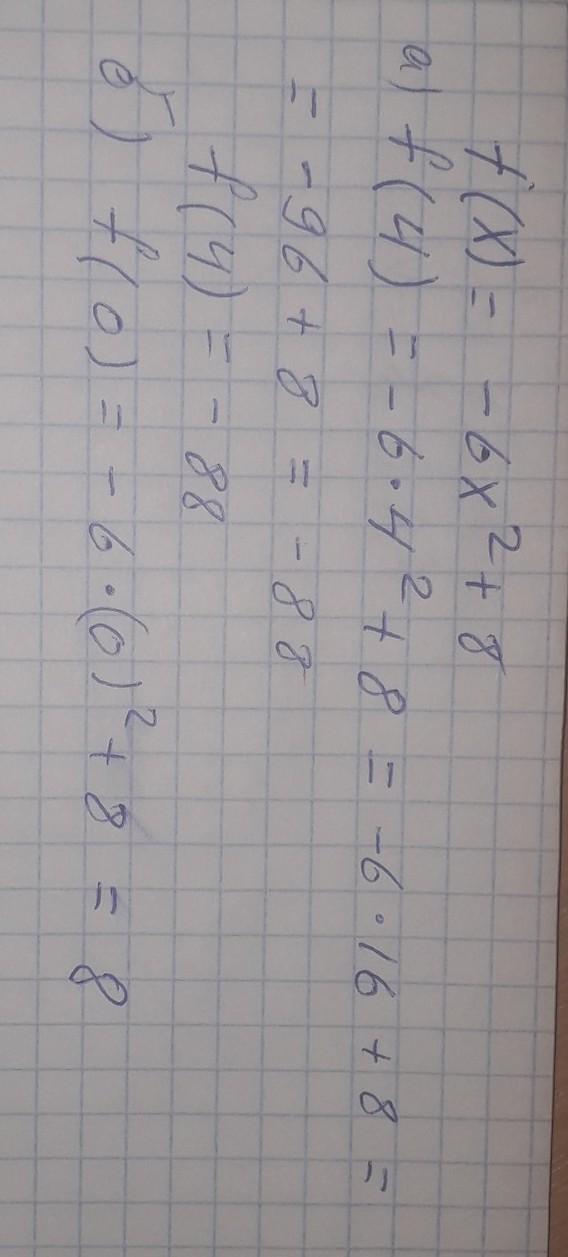 f(x) = -6x² + 8
а) f(4) = -6·4² + 8 = -6·16 + 8 =
= -96 + 8 = -88
f(4) = -88
б) f(0) = -6·(0)² + 8 = 8